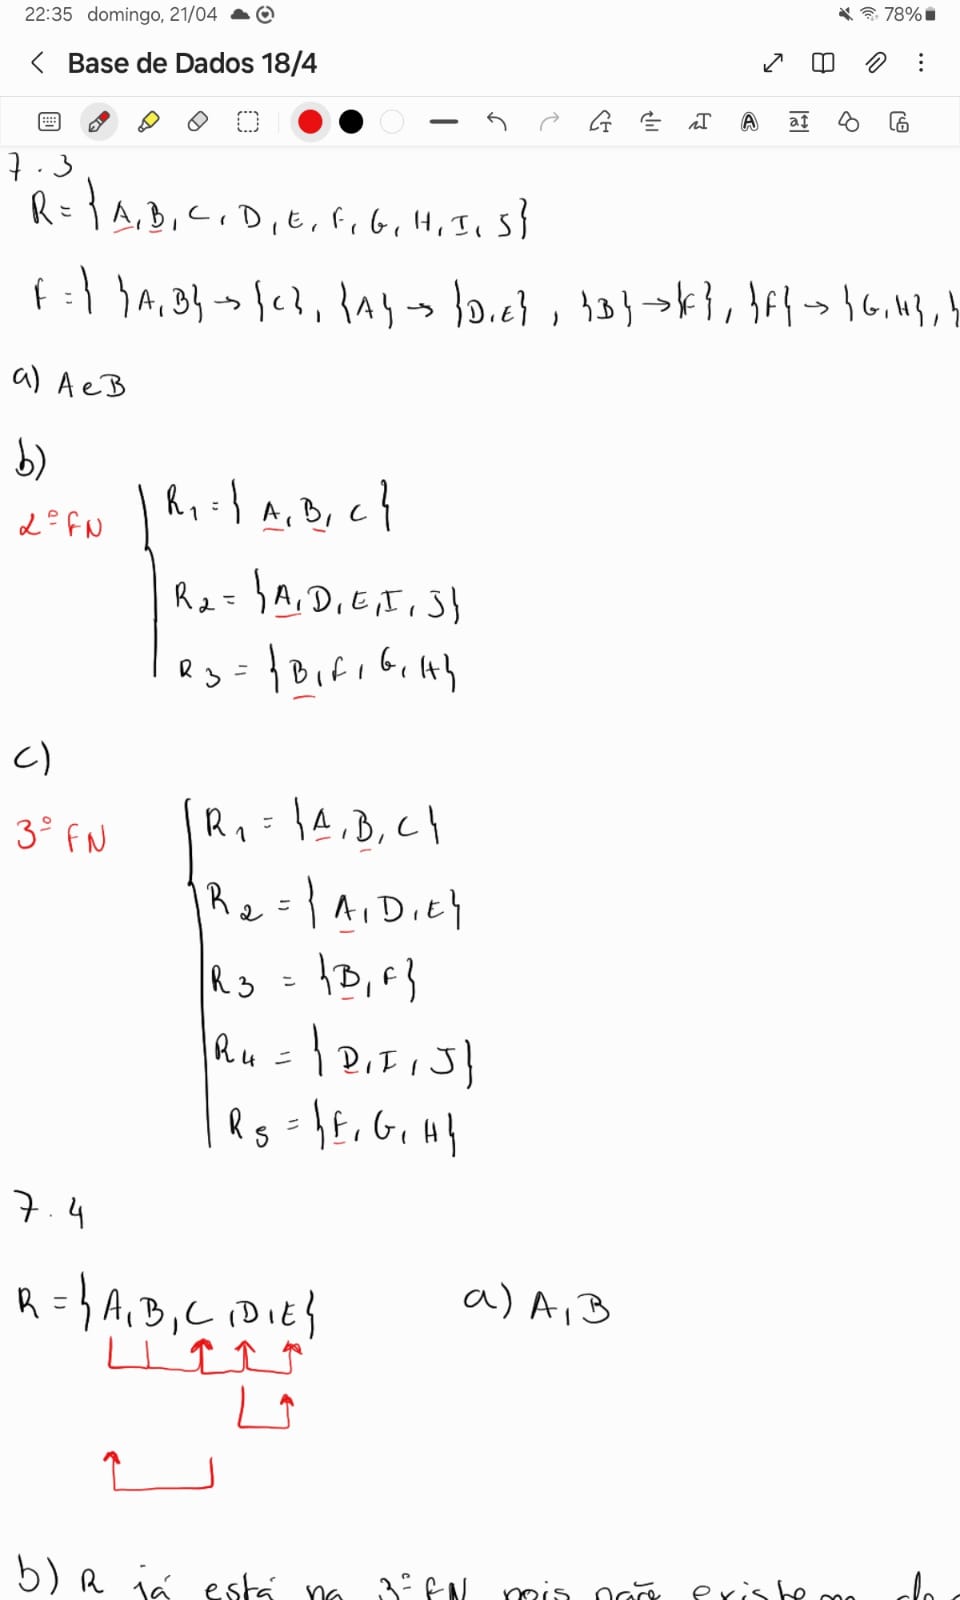 22:35 domingo, 21/04 78%
Base de Dados 18/4
7.3
R = { A, B, C, D, E, F, G, H, I, J }
F = { {A, B} → {C}, {A} → {D, E}, {B} → {F}, {F} → {G, H}, {
a) A e B
b)
2º FN
R1 = { A, B, C }
R2 = { A, D, E, I, J }
R3 = { B, F, G, H }
c)
3º FN
R1 = { A, B, C }
R2 = { A, D, E }
R3 = { B, F }
R4 = { D, I, J }
R5 = { F, G, H }
7.4
R = { A, B, C, D, E } a) A, B
b) R já está na 3º FN pois não existem